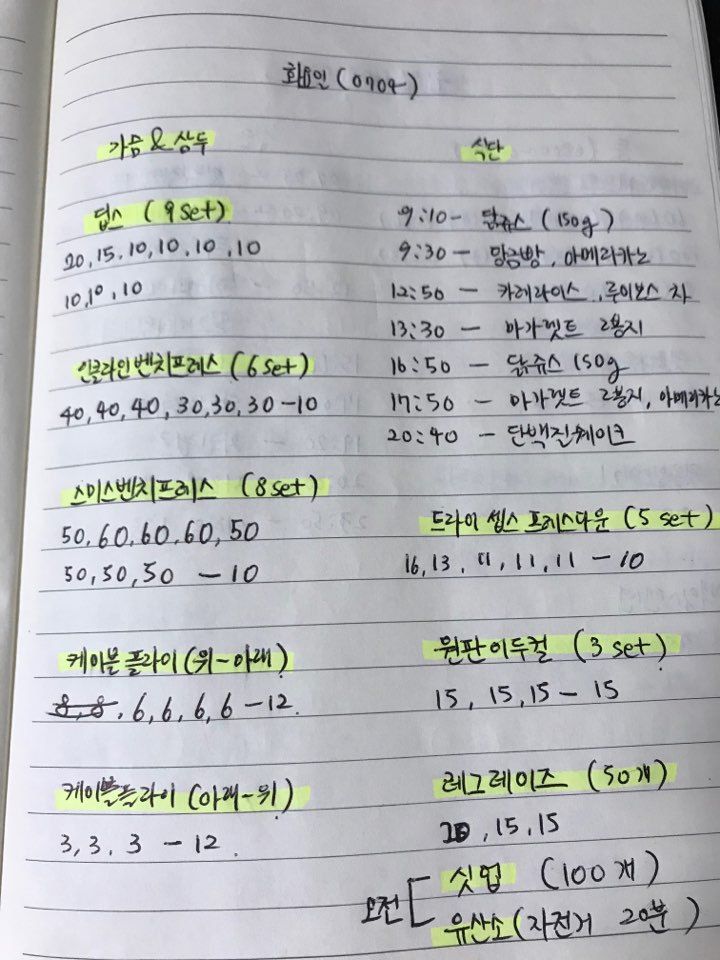 화요일 (0704)
가슴 & 삼두
딥스 (9 set)
20, 15, 10, 10, 10, 10
10, 10, 10
인클라인벤치프레스 (6 set)
40, 40, 40, 30, 30, 30 - 10
스미스벤치프레스 (8 set)
50, 60, 60, 60, 50
50, 50, 50 - 10
케이블 플라이 (위-아래)
8, 8, 6, 6, 6, 6 - 12
케이블플라이 (아래-위)
3, 3, 3 - 12
식단
9:10 - 닭쥬스 (150g)
9:30 - 앙금빵, 아메리카노
12:50 - 카레라이스, 루이보스 차
13:30 - 아가멧트 2봉지
16:50 - 닭쥬스 150g
17:50 - 아가멧트 2봉지, 아메리카노
20:40 - 단백질쉐이크
드라이 셉스 프레스다운 (5 set)
16, 13, 11, 11, 11 - 10
원판이두컬 (3 set)
15, 15, 15 - 15
레그레이즈 (50개)
20, 15, 15
오전
싯업 (100개)
유산소 (자전거 20분)